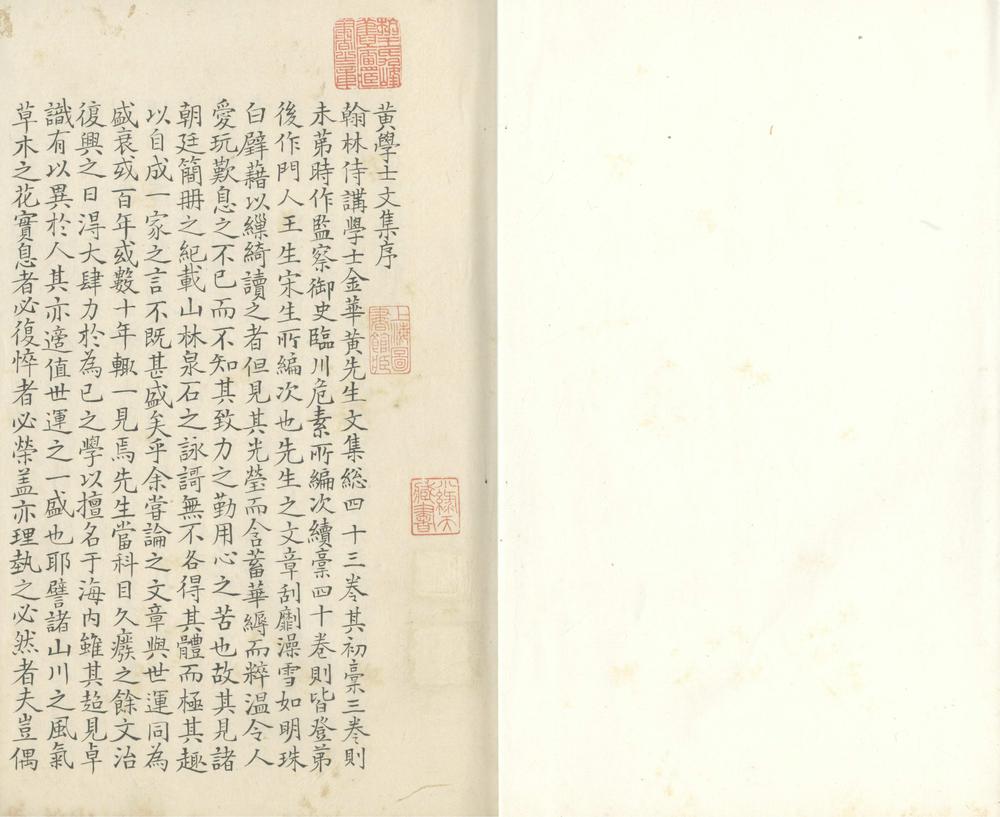 黃學士文集序
翰林侍講學士金華黃先生文集総四十三卷其初稾三卷則
未第時作監察御史臨川危素所編次續稾四十卷則皆登第
後作門人王生宋生所編次也先生之文章刮劘澡雪如明珠
白璧藉以繅綺讀之者但見其光瑩而含蓄華縟而粹温令人
愛玩歎息之不已而不知其致力之勤用心之苦也故其見諸
朝廷簡冊之紀載山林泉石之詠謌無不各得其體而極其趣
以自成一家之言不既甚盛矣乎余甞論之文章與世運同為
盛衰或百年或數十年輙一見焉先生當科目久癈之餘文治
復興之日得大肆力於為己之學以擅名于海内雖其超見卓
識有以異於人其亦適值世運之一盛也耶譬諸山川之風氣
草木之花實息者必復悴者必榮盖亦理埶之必然者夫豈偶
上海圖書館藏